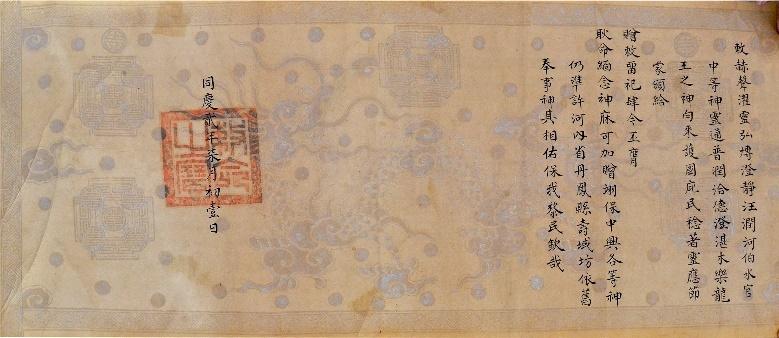 敕赫聲濯靈弘博澄靜汪潤河伯水官
中等神靈通普潤洽德澄湛永樂龍
王之神向來護國庇民稔著靈應節
蒙頒給
贈敕留祀肆今丕膺
耿命緬念神庥可加贈翊保中興各等神
仍準許河內省丹鳳縣壽域坊依舊
奉事神其相佑保我黎民欽哉
同慶貳年柒月初壹日